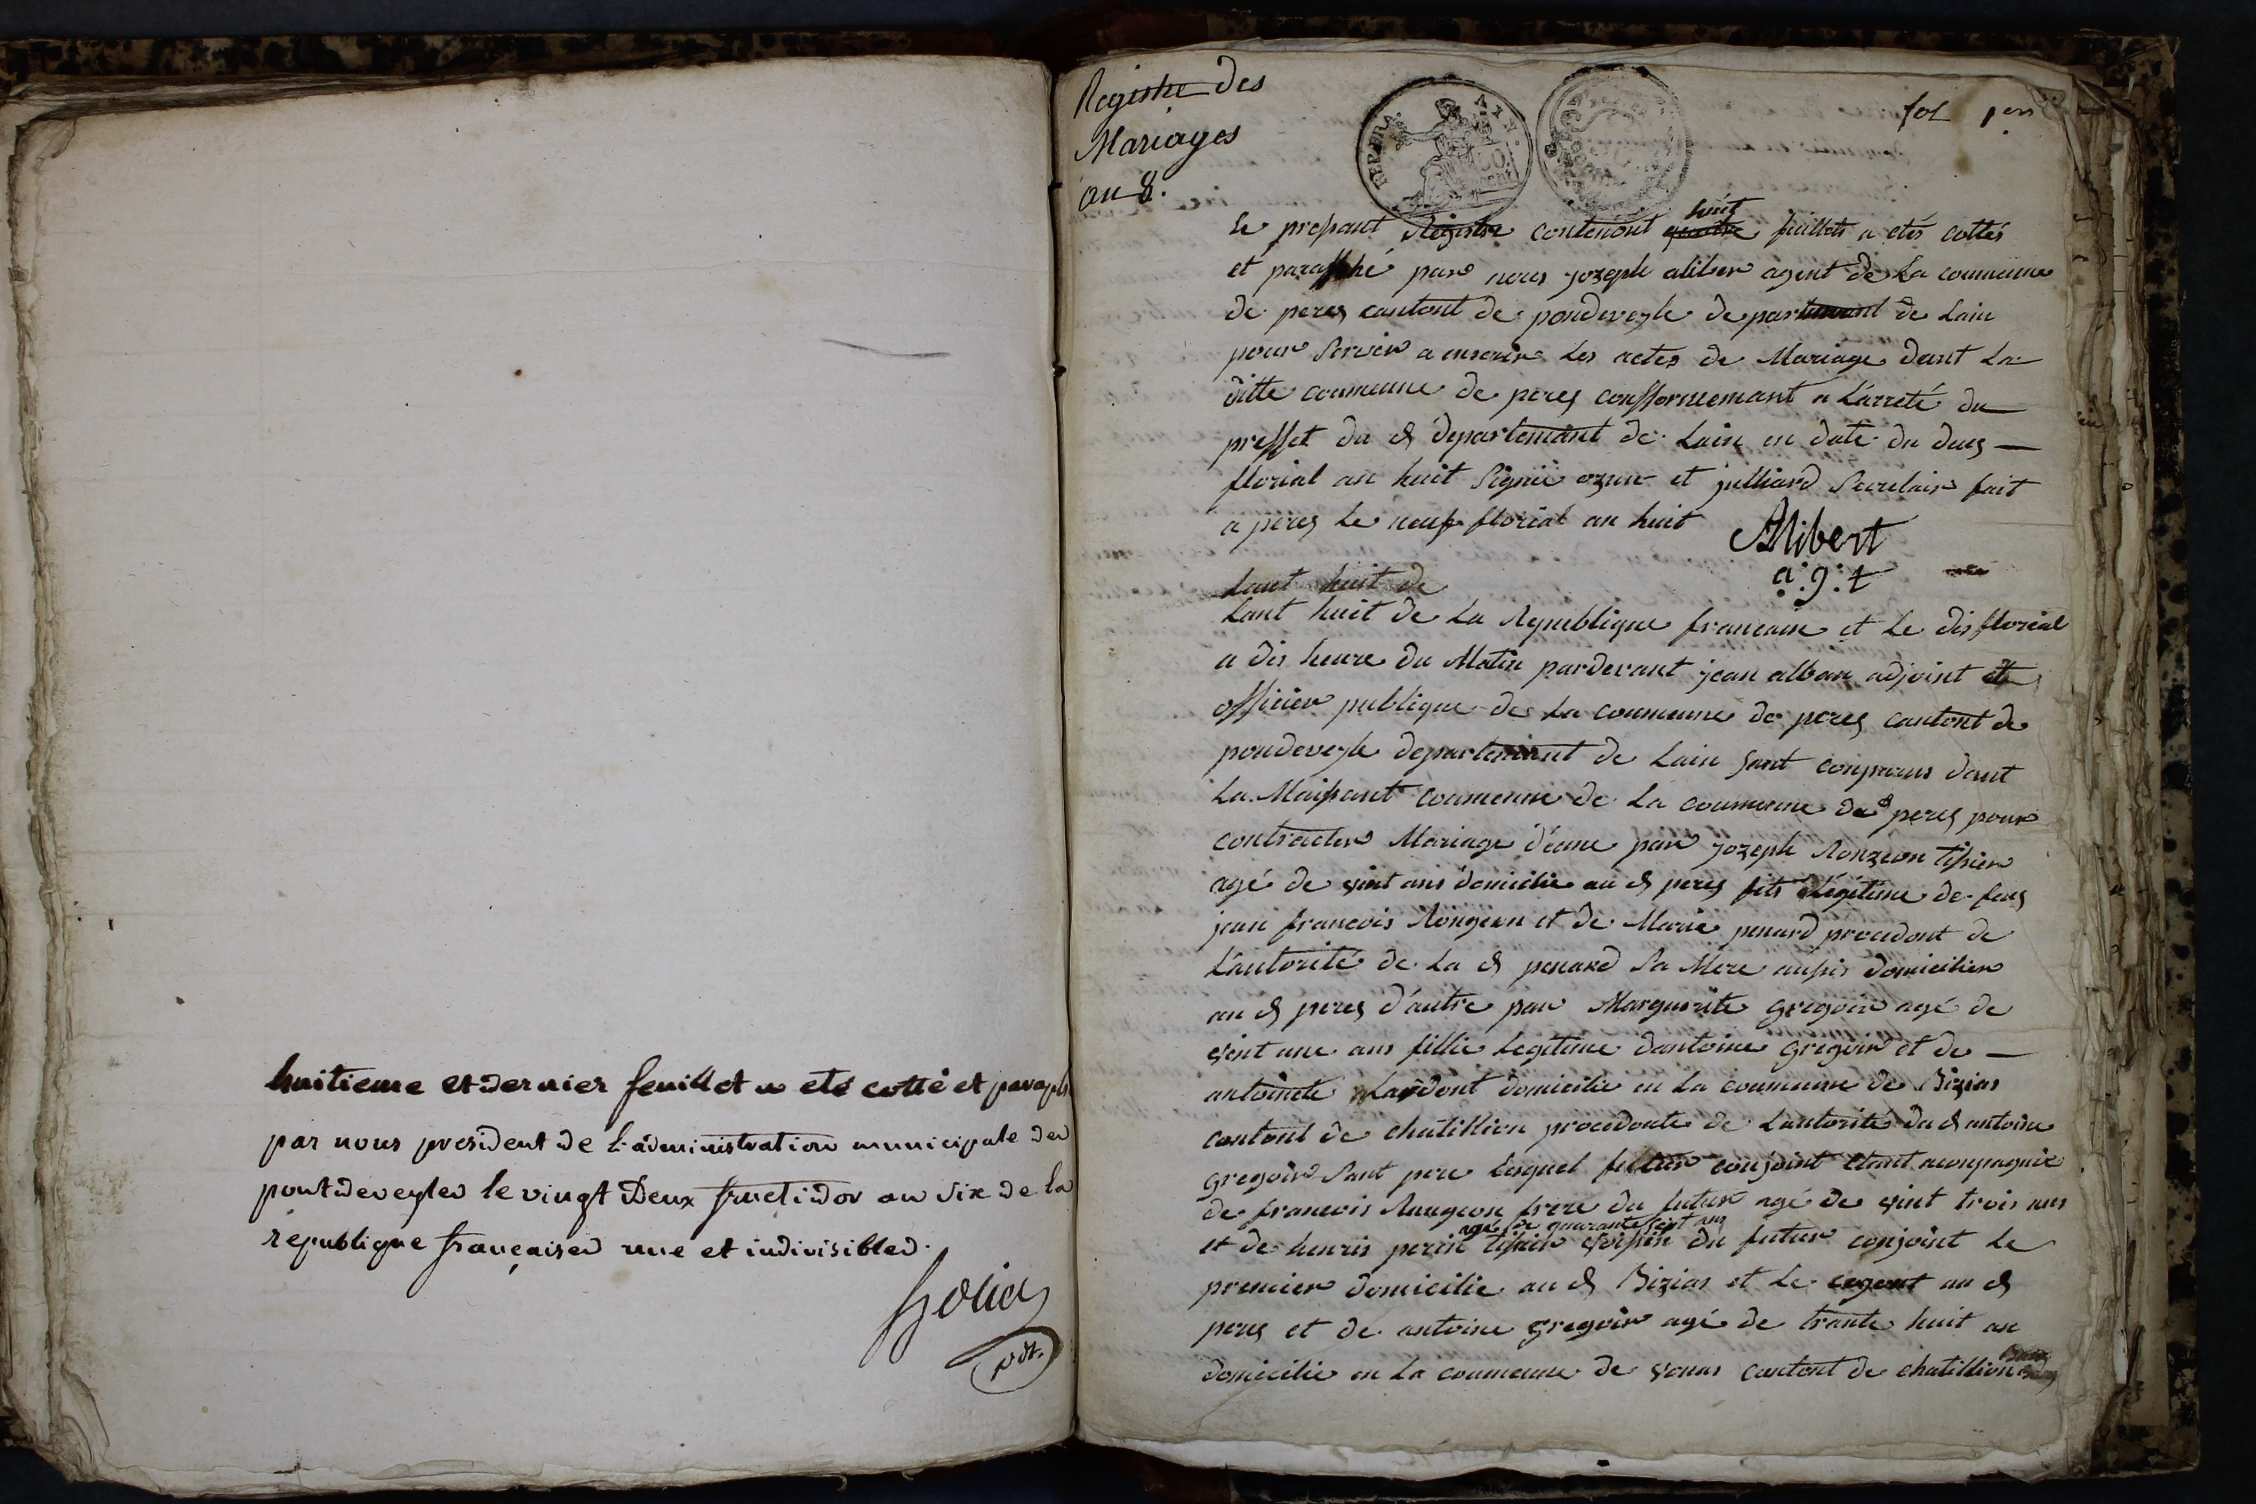 huitieme et dernier feuillet a eté cotté et paraphé
par nous president de l'administration municipale de
pontdeveyle le vingt Deux fructidor an six de la
republique françaises une et indivisible.
pdt.
Registre des
Mariages
an 8.
fol 1er
REP. FRA.
Le present Registre contenont huit feuillets a etés cottés
et paraffhé par nous jozeph aliber agent de La commune
de perex cantont de pondeveyle departemant de Lain
pour Servir a inscrir Les actes de Mariage dant La
ditte commune de perex conformemant a L'arreté du
preffet du d departemant de Lain en date du deus
florial an huit Signié ozun et julliard Secretair fait
a perex Le neuf florial an huit
Alibert
a:g:t
Lant huit de
Lant huit de La Republique francaise et Le dis florial
a dis heure du Matin pardevant jean alban adjoint et
officier publique de La commune de perex cantont de
pondeveyle departemant de Lain sont conparus dant
La Maisant commune de La commune de perex pour
contracter Mariage d'eune par jozeph Ronzeon tisier
agé de vint ans domicilie au d perex fits Légitime de feus
jean francois Rongeon et de Marie penard procedont de
L'autorité de La d penard Sa Mere aussis domicilier
au d perex d'autre par Marguerite gregoir agé de
vint une ans fillie Legitime dantoine gregoir et de
antoinete Lardont domicilie en La commune de Bizias
cantont de chatillion procedonte de L'autorité du d antoine
gregoir Sant pere Lesquel futur conjoint etant aconpagnie
de francois Rongeon frere du futur agé de vint trois ans
agé de quarante sept ans
et de henris perin tisier voisin du futur conjoint Le
premier domicilie au d Bizias et Le cegont au d
perex et de antoine gregoir agé de trante huit an
domicilie en La commune de vonas cantont de chatillion